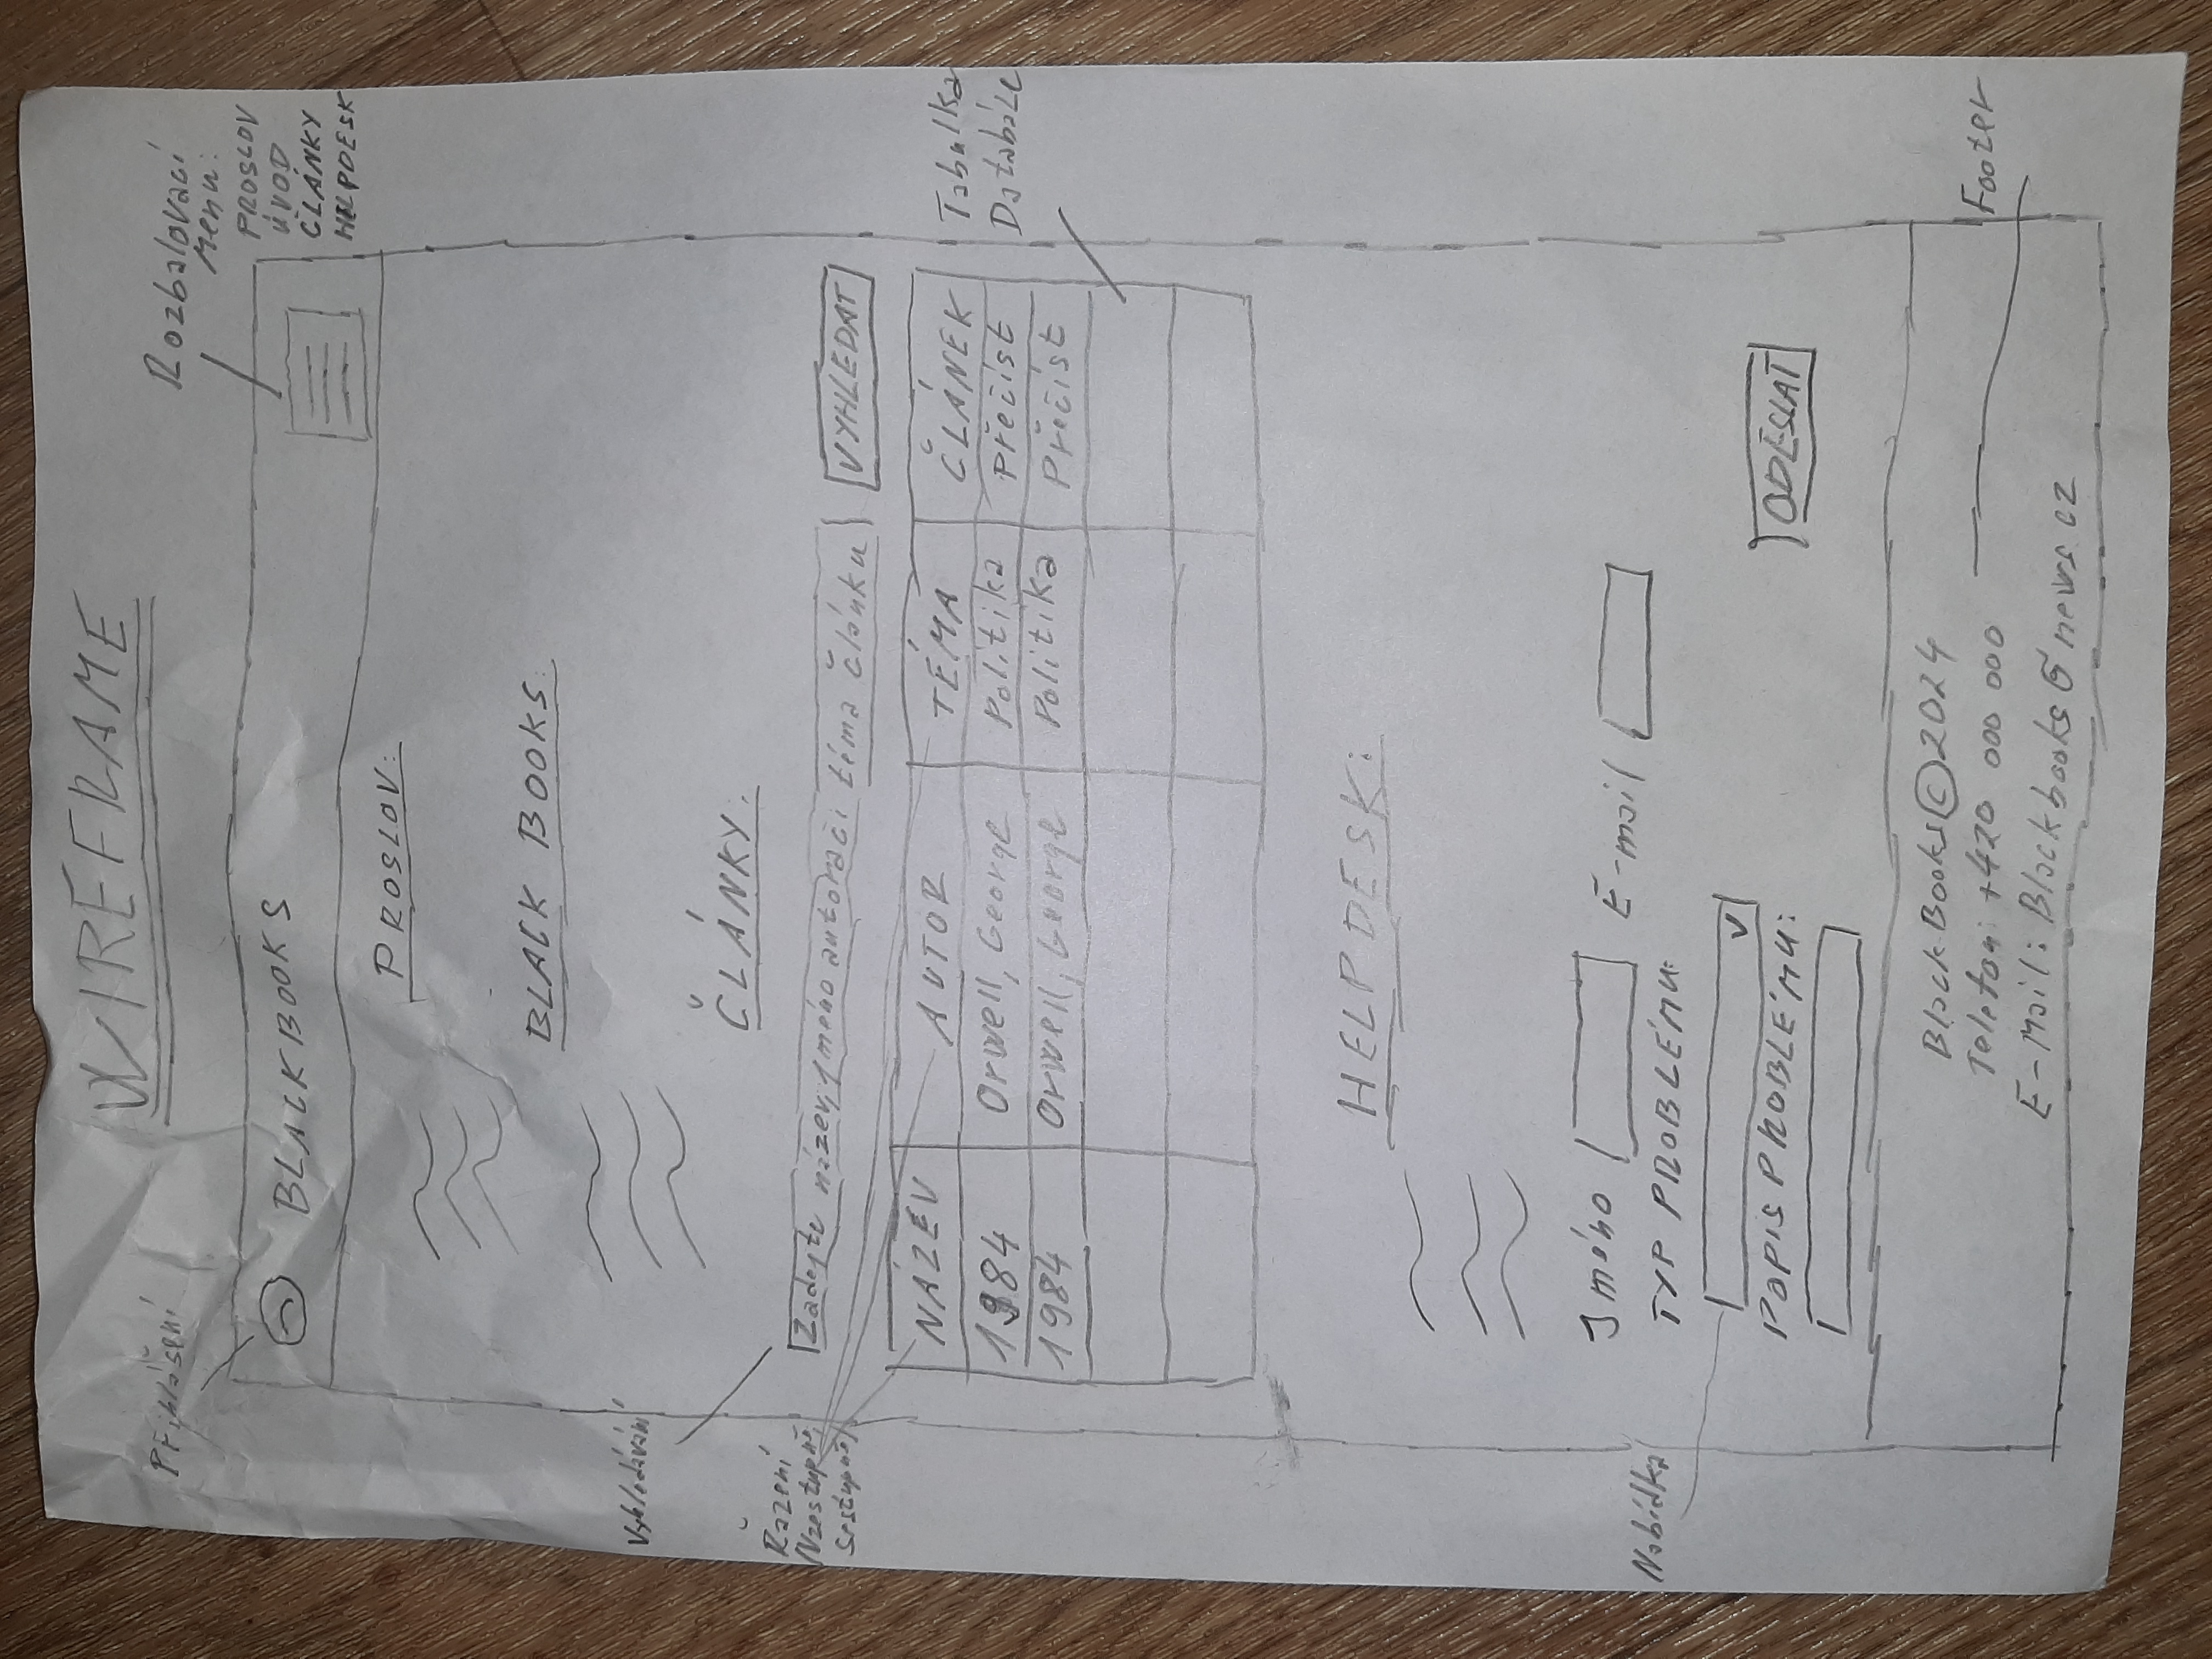 WIREFRAME
Přihlášení
Rozbalovací
Menu:
PROSLOV
ÚVOD
ČLÁNKY
HELPDESK
BLACKBOOKS
PROSLOV:
BLACK BOOKS:
Vyhledávání
ČLÁNKY:
Řazení
(Vzestupně,
Sestupně)
Zadejte název, Jméno autora či téma článku
VYHLEDAT
NÁZEV AUTOR TÉMA ČLÁNEK
1984 Orwell, George Politika Přečíst
1984 Orwell, George Politika Přečíst
Tabulka
Databáze
HELPDESK:
Jméno E-mail
Nabídka
TYP PROBLÉMU:
POPIS PROBLÉMU:
ODESLAT
BlackBooks©2024
Telefon: +420 000 000
Footer
E-Mail: Blackbooks@news.cz